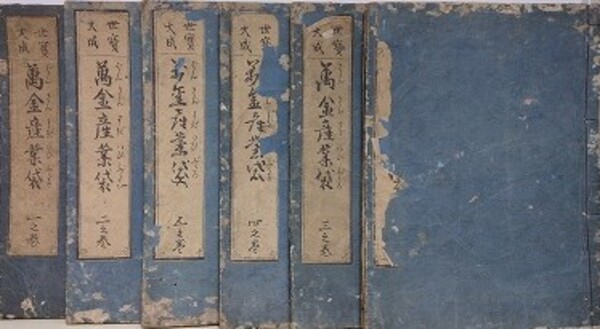 世寳
大成
萬金産業袋
一之巻
世寳
大成
萬金産業袋
二之巻
世寳
大成
萬金産業袋
五之巻
世寳
大成
萬金産業袋
四之巻
世寳
大成
萬金産業袋
三之巻